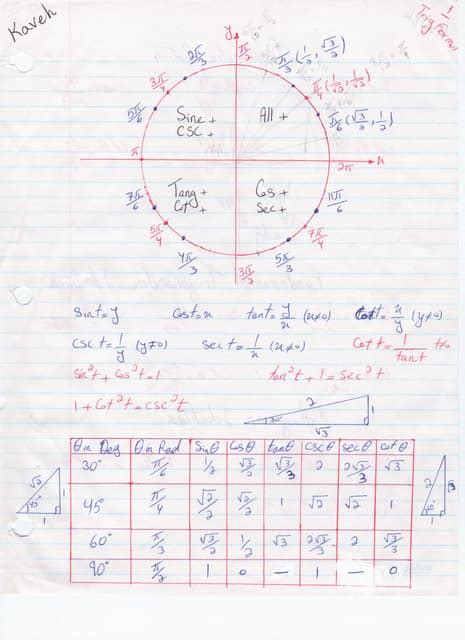 Kaveh
1
Trig Forms
y
π/2
2π/3
π/3 (1/2, √3/2)
3π/4
π/4 (1/√2, 1/√2)
5π/6
π/6 (√3/2, 1/2)
Sine +
CSC +
All +
π
2π
x
Tang +
Cot +
Cos +
Sec +
7π/6
11π/6
5π/4
7π/4
4π/3
3π/2
5π/3
Sint = y
Cost = x
tant = y/x (x≠0)
Cott = x/y (y≠0)
CSC t = 1/y (y≠0)
Sec t = 1/x (x≠0)
Cot t = 1/tant t≠0
Sin²t + Cos²t = 1
tan²t + 1 = Sec²t
1 + Cot²t = CSC²t
2
30°
1
√3
θ in Deg θ in Rad Sinθ Cosθ tanθ CSCθ Secθ Cotθ
30° π/6 1/2 √3/2 √3/3 2 2√3/3 √3
45° π/4 √2/2 √2/2 1 √2 √2 1
60° π/3 √3/2 1/2 √3 2√3/3 2 √3/3
90° π/2 1 0 — 1 — 0
√2
45°
1
1
2
√3
60°
1